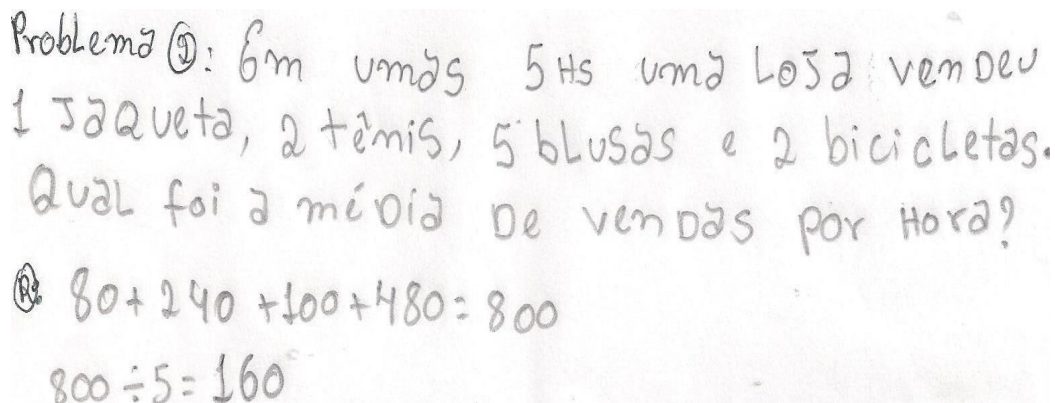 Problema ①: Em umas 5Hs uma Loja vendeu
1 Jaqueta, 2 tênis, 5 blusas e 2 bicicletas.
Qual foi a média de vendas por Hora?
R: 80+240+100+480=800
800÷5=160